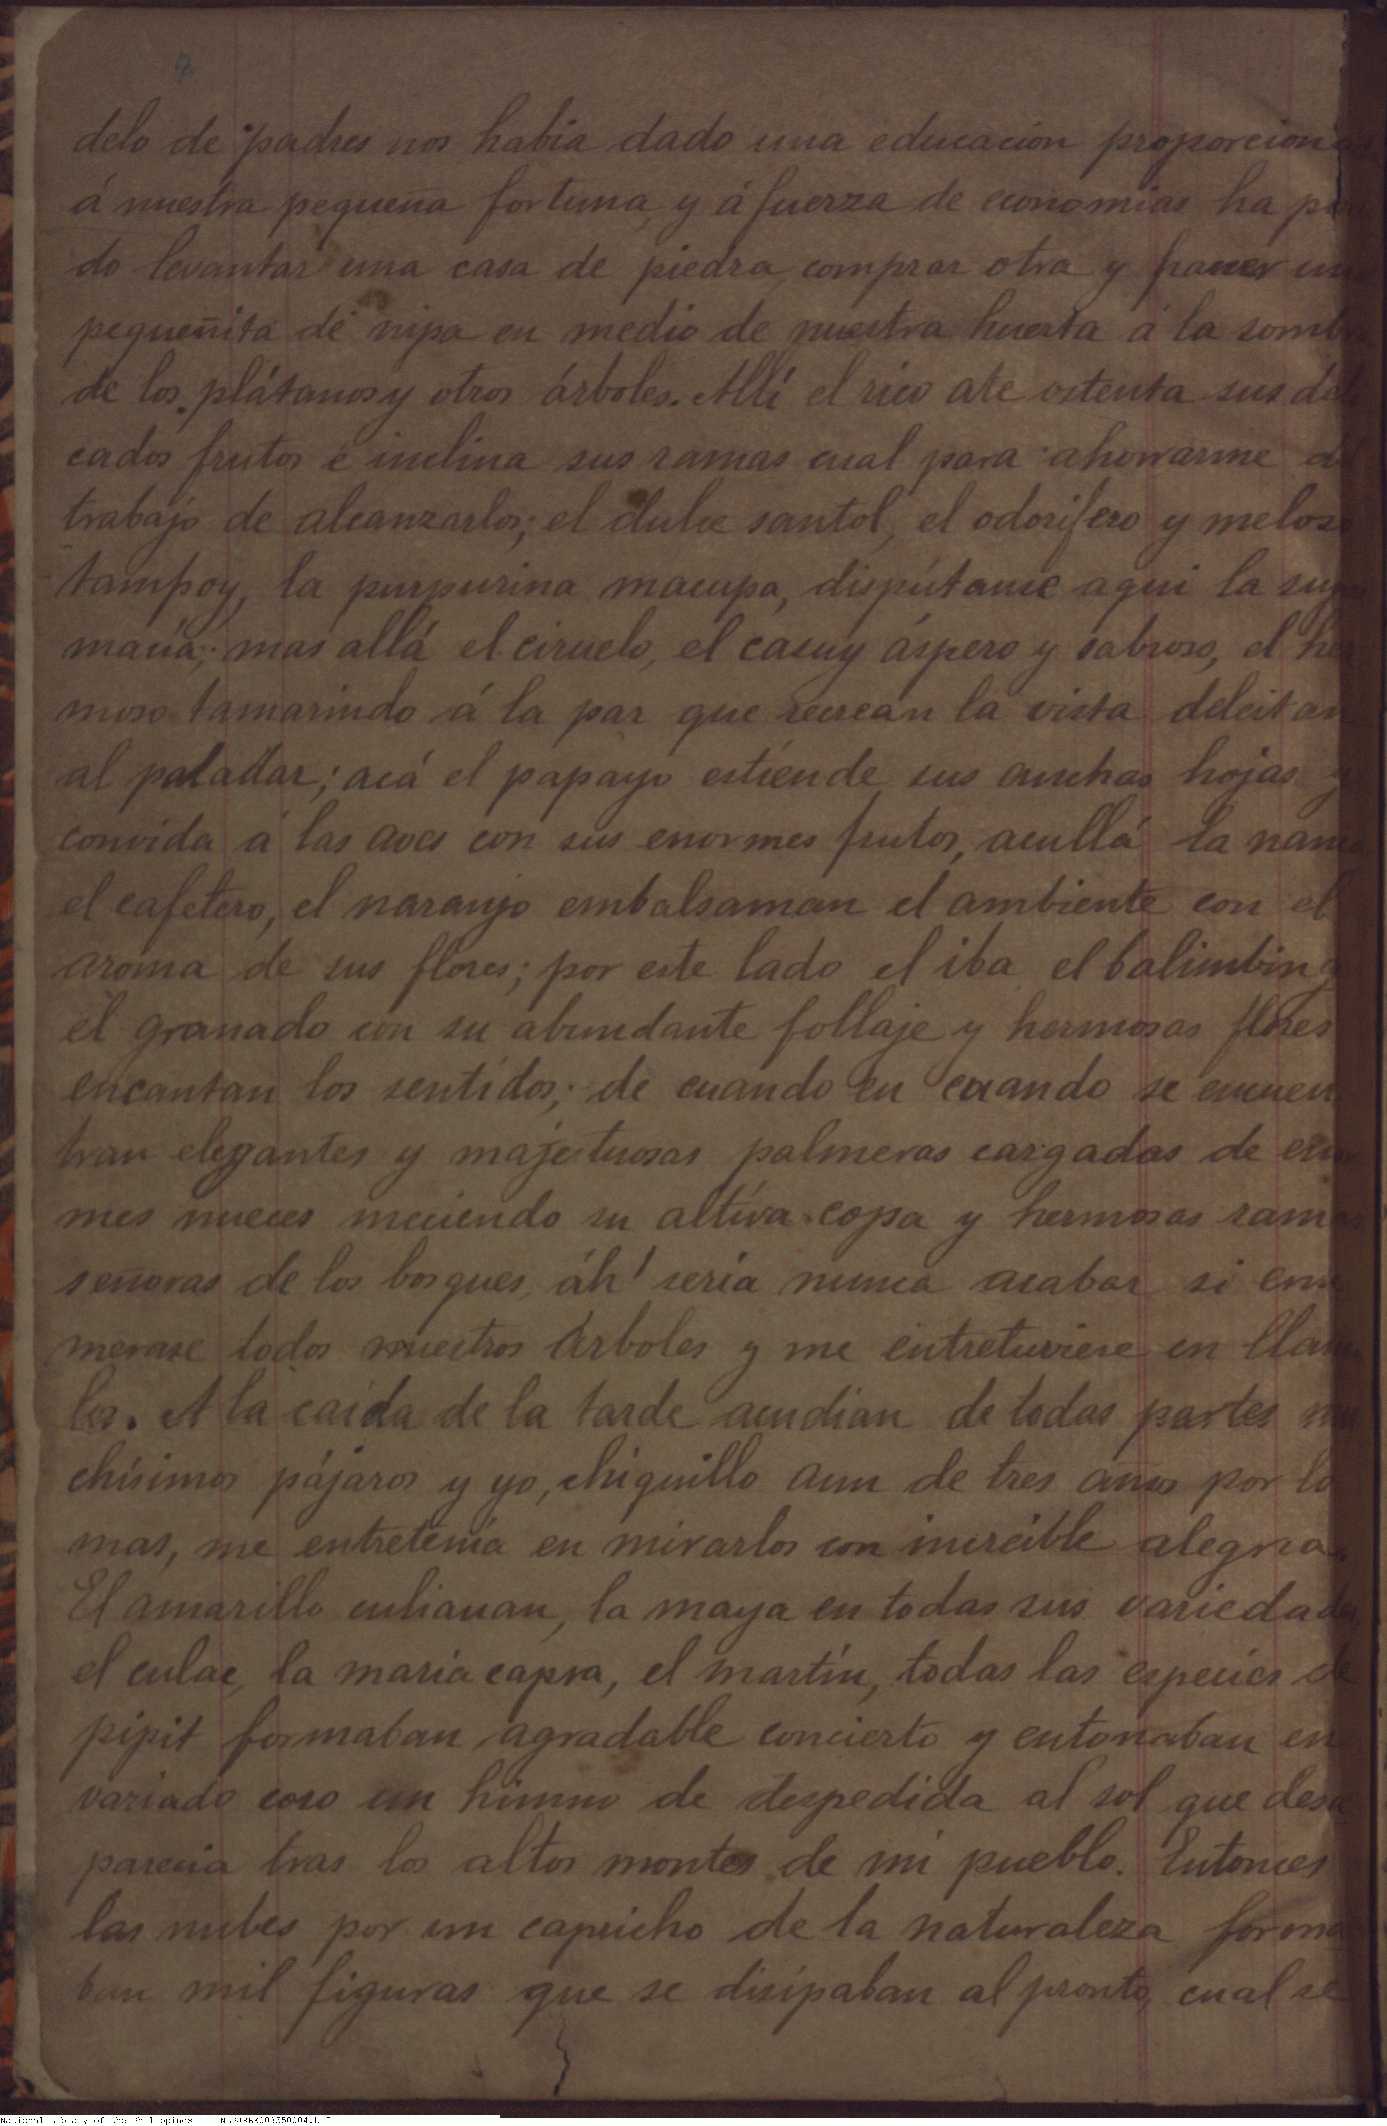 2
delo de padres nos habia dado una educación proporcionas
á nuestra pequeña fortuna, y á fuerza de economías ha po
do levantar una casa de piedra, comprar otra y hacer una
pequeñita de nipa en medio de nuestra huerta á la sombra
de los plátanos y otros árboles. Allí el rico ate ostenta sus deli
cados frutos é inclina sus ramas cual para ahorrarme del
trabajo de alcanzarlos; el dulce santol, el odorífero y meloso
tampoy, la purpurina macupa, dispútanse aqui la supre
macía; mas allá el ciruelo, el casuy áspero y sabroso, el her
moso tamarindo á la par que recrean la vista deleitan
al paladar; acá el papayo estiende sus anchas hojas y
convida á las aves con sus enormes frutos, acullá la nanca
el cafetero, el naranjo embalsaman el ambiente con el
aroma de sus flores; por este lado el iba, el balimbing
el granado con su abundante follaje y hermosas flores
encantan los sentidos; de cuando en cuando se encuen
tran elegantes y majestuosas palmeras cargadas de enor
mes nueces meciendo su altiva copa y hermosas ramas
señoras de los bosques, áh! seria nunca acabar si enu
merase todos nuestros árboles y me entretuviese en llamar
los. A la caida de la tarde acudian de todas partes mu
chísimos pájaros y yo, chiquillo aun de tres años por lo
mas, me entretenía en mirarlos con increible alegria.
El amarillo culianan, la maya en todas sus variedades,
el culae, la maria capra, el martín, todas las especies de
pipit formaban agradable concierto y entonaban en
variado coro un himno de despedida al sol que desa
parecia tras los altos montes de mi pueblo. Entonces
las nubes por un capricho de la naturaleza forma
ban mil figuras que se disipaban al pronto, cual se
National Library of the Philippines